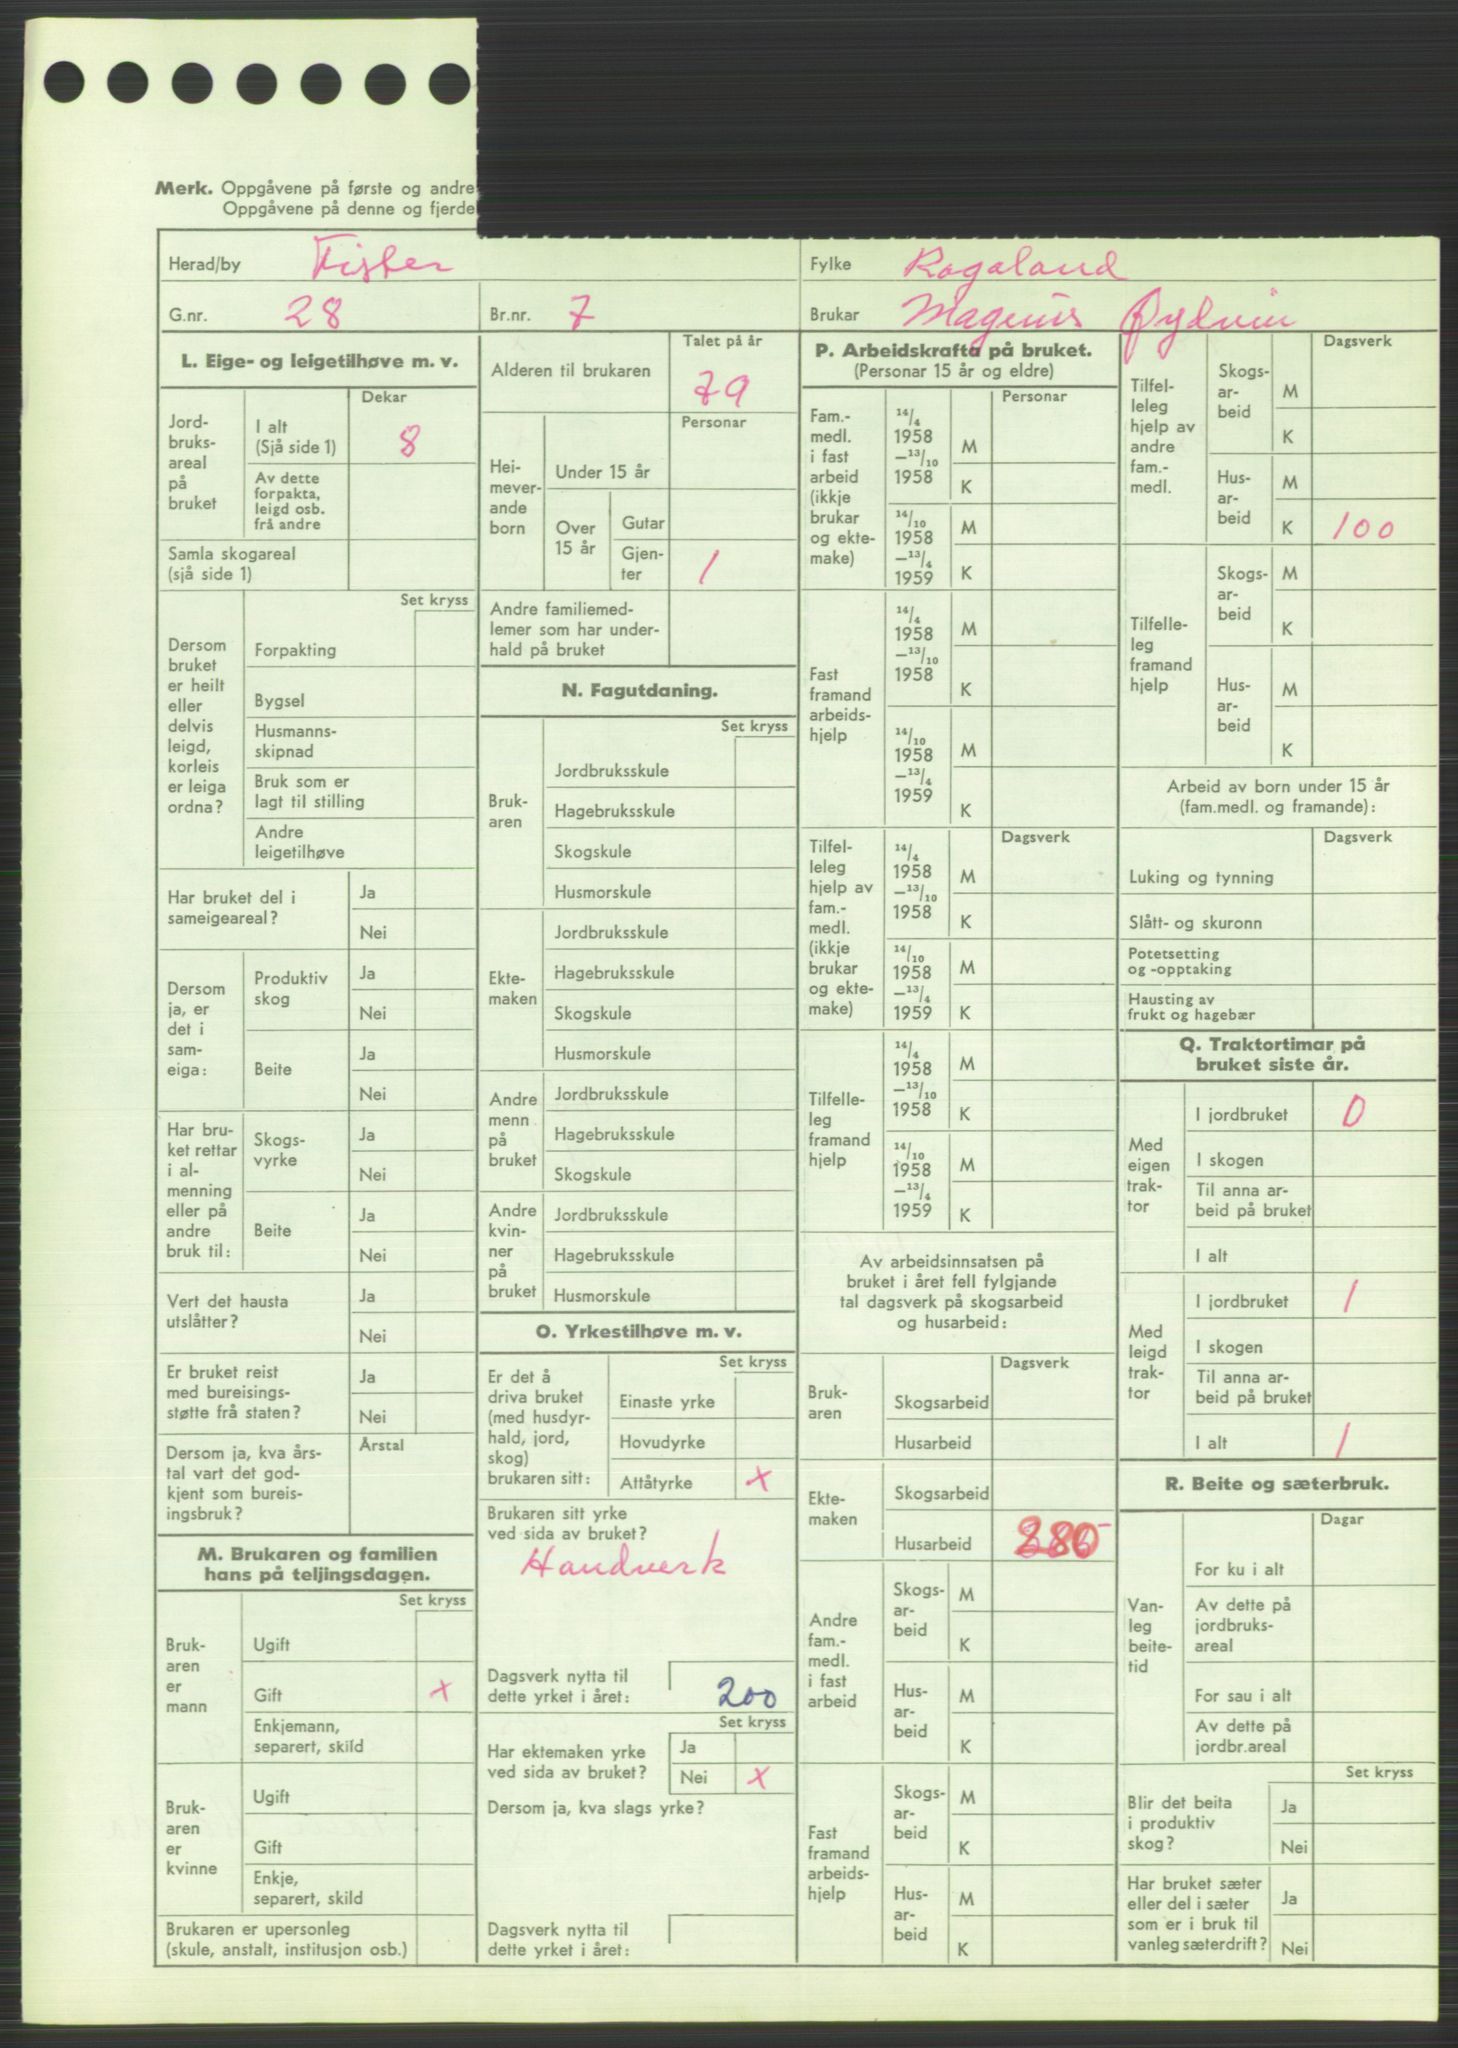 Merk. Oppgåvene på første og andre
Oppgåvene på denne og fjerde
Herad/by Fister
Fylke Rogaland
G.nr. 28
Br.nr. 7
Brukar Magnus Øydvin
L. Eige- og leigetilhøve m. v.
Dekar
Jord-
bruks-
areal
på
bruket
I alt
(Sjå side 1) 8
Av dette
forpakta,
leigd osb.
frå andre
Samla skogareal
(sjå side 1)
Set kryss
Dersom
bruket
er heilt
eller
delvis
leigd,
korleis
er leiga
ordna?
Forpakting
Bygsel
Husmanns-
skipnad
Bruk som er
lagt til stilling
Andre
leigetilhøve
Har bruket del i
sameigeareal?
Ja
Nei
Dersom
ja, er
det i
sam-
eiga:
Produktiv
skog
Ja
Nei
Beite
Ja
Nei
Har bru-
ket rettar
i al-
menning
eller på
andre
bruk til:
Skogs-
vyrke
Ja
Nei
Beite
Ja
Nei
Vert det hausta
utslåtter?
Ja
Nei
Er bruket reist
med bureisings-
støtte frå staten?
Ja
Nei
Dersom ja, kva års-
tal vart det god-
kjent som bureis-
ingsbruk?
Årstal
M. Brukaren og familien
hans på teljingsdagen.
Set kryss
Bruk-
aren
er
mann
Ugift
Gift x
Enkjemann,
separert, skild
Bruk-
aren
er
kvinne
Ugift
Gift
Enkje,
separert, skild
Brukaren er upersonleg
(skule, anstalt, institusjon osb.)
Talet på år
Alderen til brukaren 79
Personar
Hei-
mever-
ande
born
Under 15 år
Over
15 år
Gutar
Gjen-
ter 1
Andre familiemed-
lemer som har under-
hald på bruket
N. Fagutdaning.
Set kryss
Bruk-
aren
Jordbruksskule
Hagebruksskule
Skogskule
Husmorskule
Ekte-
maken
Jordbruksskule
Hagebruksskule
Skogskule
Husmorskule
Andre
menn
på
bruket
Jordbruksskule
Hagebruksskule
Skogskule
Andre
kvin-
ner
på
bruket
Jordbruksskule
Hagebruksskule
Husmorskule
O. Yrkestilhøve m. v.
Set kryss
Er det å
driva bruket
(med husdyr-
hald, jord,
skog)
brukaren sitt:
Einaste yrke
Hovudyrke
Attåtyrke x
Brukaren sitt yrke
ved sida av bruket?
Handverk
Dagsverk nytta til
dette yrket i året: 200
Set kryss
Har ektemaken yrke
ved sida av bruket?
Ja
Nei x
Dersom ja, kva slags yrke?
Dagsverk nytta til
dette yrket i året:
P. Arbeidskrafta på bruket.
(Personar 15 år og eldre)
Personar
Fam.-
medl.
i fast
arbeid
(ikkje
brukar
og ekte-
make)
14/4
1958
—13/10
1958
M
K
14/10
1958
—13/4
1959
M
K
Fast
framand
arbeids-
hjelp
14/4
1958
—13/10
1958
M
K
14/10
1958
—13/4
1959
M
K
Dagsverk
Tilfel-
leleg
hjelp av
fam.-
medl.
(ikkje
brukar
og ekte-
make)
14/4
1958
—13/10
1958
M
K
14/10
1958
—13/4
1959
M
K
Tilfelle-
leg
framand
hjelp
14/4
1958
—13/10
1958
M
K
14/10
1958
—13/4
1959
M
K
Av arbeidsinnsatsen på
bruket i året fell fylgjande
tal dagsverk på skogsarbeid
og husarbeid:
Dagsverk
Bruk-
aren
Skogsarbeid
Husarbeid
Ekte-
maken
Skogsarbeid
Husarbeid
Andre
fam.-
medl.
i fast
arbeid
Skogs-
ar-
beid
M
K
Hus-
ar-
beid
M
K
Fast
framand
arbeids-
hjelp
Skogs-
ar-
beid
M
K
Hus-
ar-
beid
M
K
Dagsverk
Tilfel-
leleg
hjelp av
andre
fam.-
medl.
Skogs-
ar-
beid
M
K
Hus-
ar-
beid
M
K 100
Tilfelle-
leg
framand
hjelp
Skogs-
ar-
beid
M
K
Hus-
ar-
beid
M
K
Arbeid av born under 15 år
(fam.medl. og framande):
Dagsverk
Luking og tynning
Slått- og skuronn
Potetsetting
og -opptaking
Hausting av
frukt og hagebær
Q. Traktortimar på
bruket siste år.
Med
eigen
trak-
tor
I jordbruket 0
I skogen
Til anna ar-
beid på bruket
I alt
Med
leigd
trak-
tor
I jordbruket 1
I skogen
Til anna ar-
beid på bruket
I alt 1
R. Beite og sæterbruk.
Dagar
Van-
leg
beite-
tid
For ku i alt
Av dette på
jordbruks-
areal
For sau i alt
Av dette på
jordbr.areal
Set kryss
Blir det beita
i produktiv
skog?
Ja
Nei
Har bruket sæter
eller del i sæter
som er i bruk til
vanleg sæterdrift?
Ja
Nei